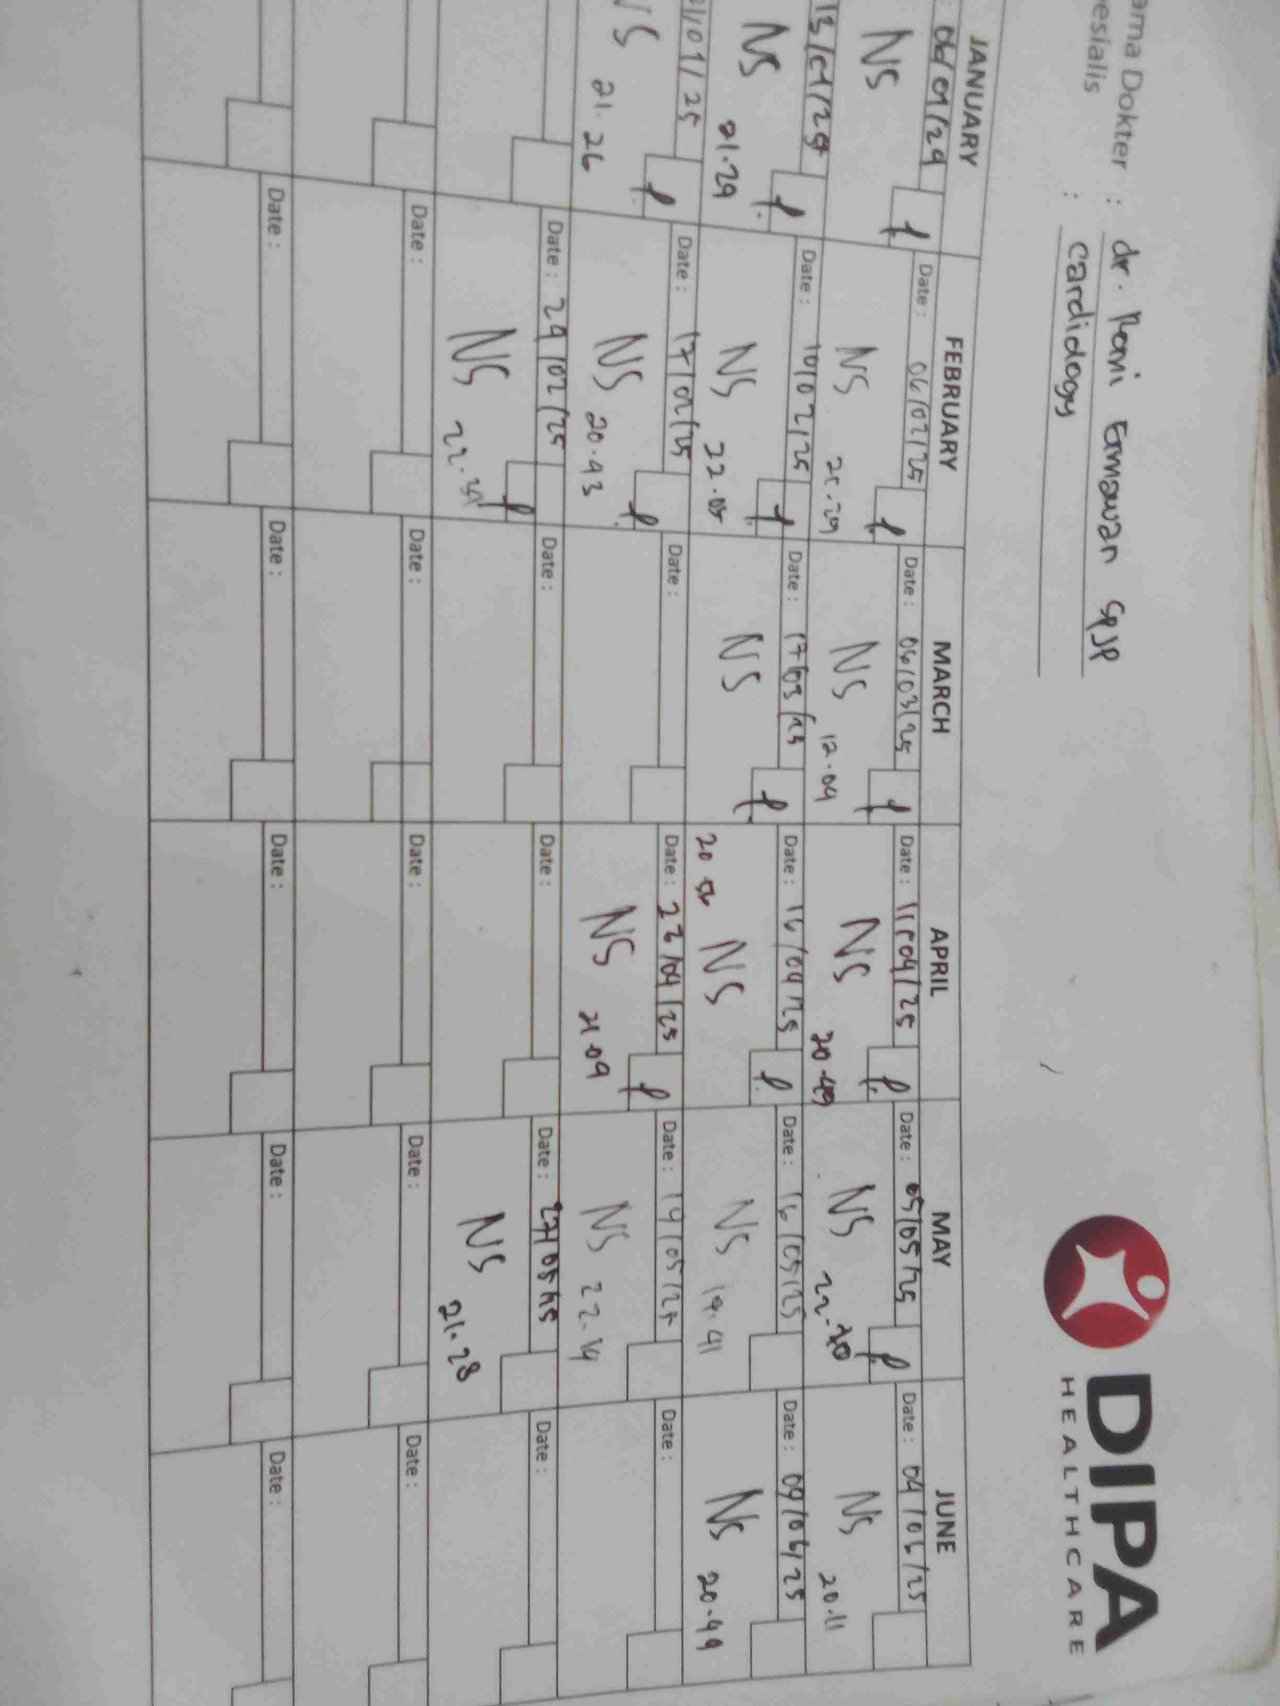 DIPA
HEALTHCARE
ama Dokter : dr. Roni Ermawan SpJP
esialis : Cardiology
JANUARY FEBRUARY MARCH APRIL MAY JUNE
06/01/24 Date : 06/02/25 Date : 06/03/25 Date : 11/04/25 Date : 05/05/25 Date : 04/06/25
NS NS 21.29 NS 12.09 NS 20.49 NS 22.30 NS 20.11
13/01/25 Date : 10/02/25 Date : 17/03/25 Date : 16/04/25 Date : 16/05/25 Date : 09/06/25
NS 21.29 NS 22.05 NS 20 56 NS NS 19.41 NS 20.49
/01/25 Date : 17/02/25 Date : Date : 22/04/25 Date : 19/05/25 Date :
NS 21.26 NS 20.43 NS 21.09 NS 22.14
Date : 24/02/25 Date : Date : Date : 27/05/25 Date :
NS NS 21.28
Date : Date : Date : Date : Date :
Date : Date : Date : Date : Date :